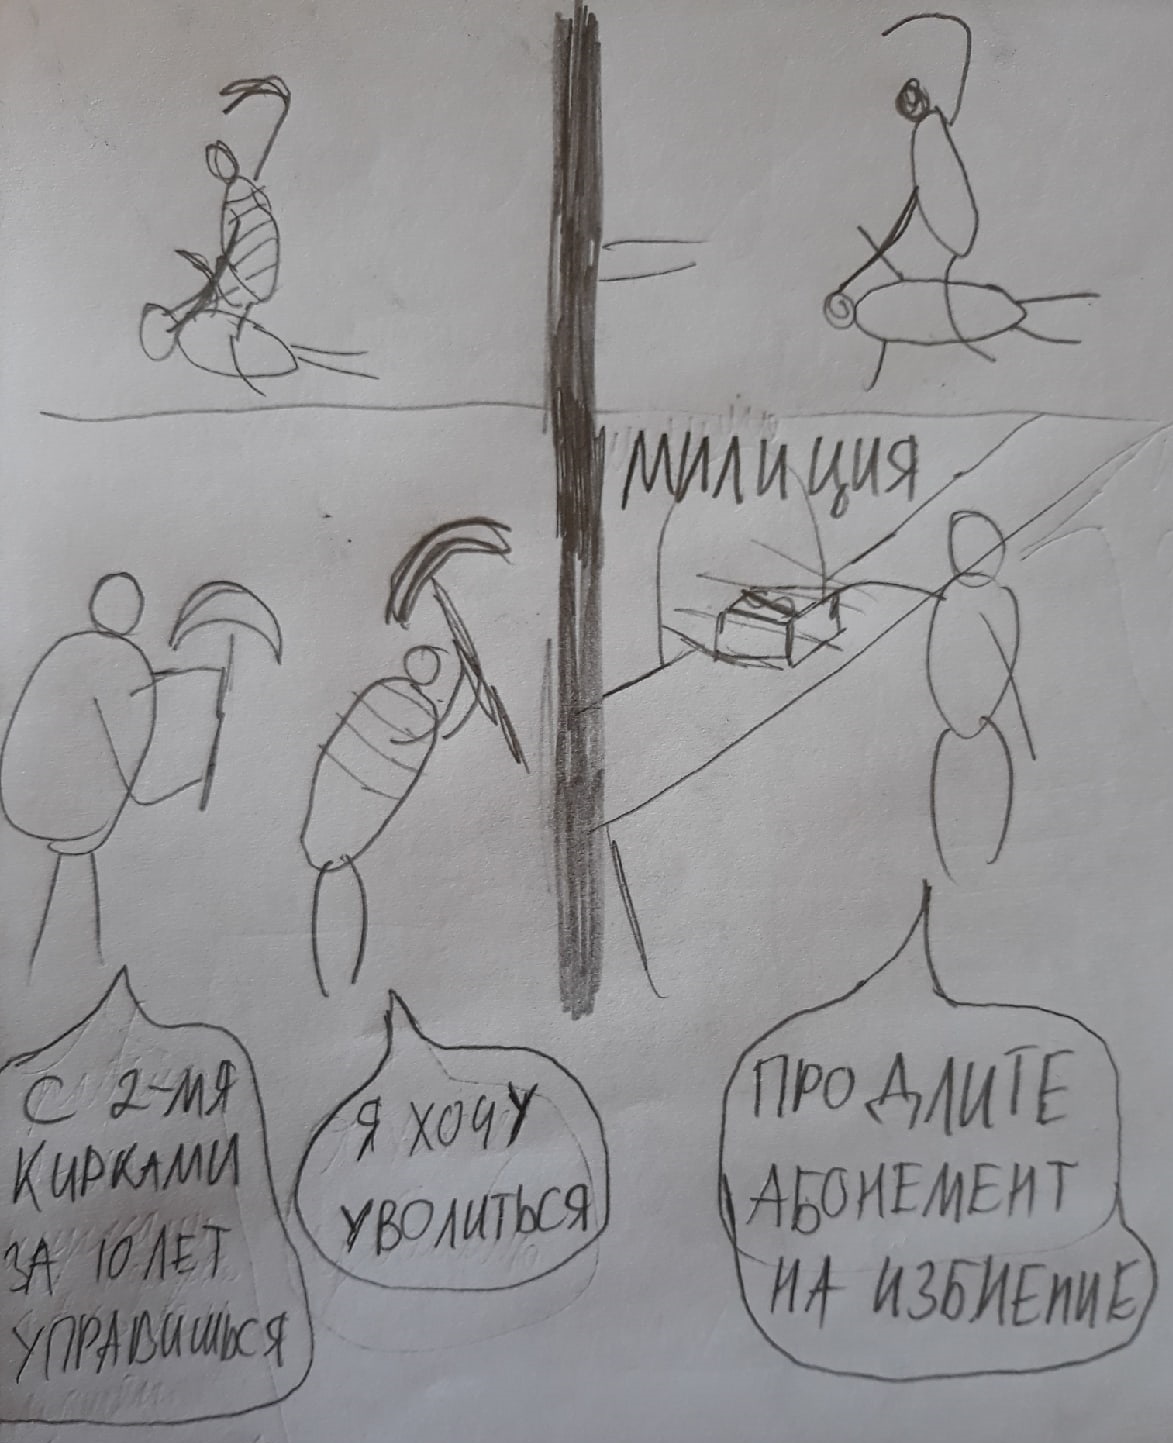 МИЛИЦИЯ
С 2-МЯ
КИРКАМИ
ЗА 10 ЛЕТ
УПРАВИШЬСЯ
Я ХОЧУ
УВОЛИТЬСЯ
ПРОДЛИТЕ
АБОНЕМЕНТ
НА ИЗБИЕНИЕ